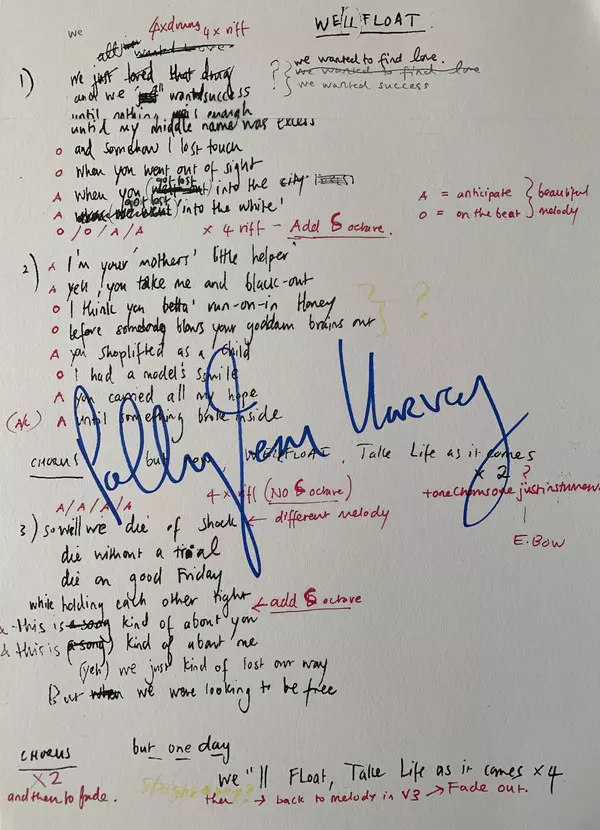 we
4xdrums
4 x riff
WE'LL FLOAT
1)
we just loved that drug
and we wanted success
until nothing was enough
until my middle name was excess
? { we wanted to find love.
we wanted to find love
? we wanted success
O and somehow I lost touch
O when you went out of sight
A when you got lost into the city
A got lost into the white'
O / O / A / A
x 4 riff - Add 6 octave.
A = anticipate } beautiful
O = on the beat } melody
2) A I'm your 'mothers' little helper'
A yeh, you take me and black-out
O I think you betta' run-on-in Honey
O before somebody blows your goddam brains out
?
A you shoplifted as a child
O I had a model's smile
A you carried all my hope
(A/c) A until something broke inside
Polly Jean Harvey
CHORUS but WE'LL FLOAT, Take Life as it comes
x 2 ?
+one chorus one just instrumen
E.Bow
A/A/A/A
4 x riff (No 6 octave)
3) so will we die of shock ← different melody
die without a trial
die on good Friday
while holding each other tight ← add 6 octave
& -this is a song kind of about you
& this is (a song) kind of about me
(yeh) we just kind of lost our way
But when we were looking to be free
CHORUS
x 2
and then to fade.
but one day
we''ll Float, Take Life as it comes x 4
then → back to melody in V3 → Fade out.